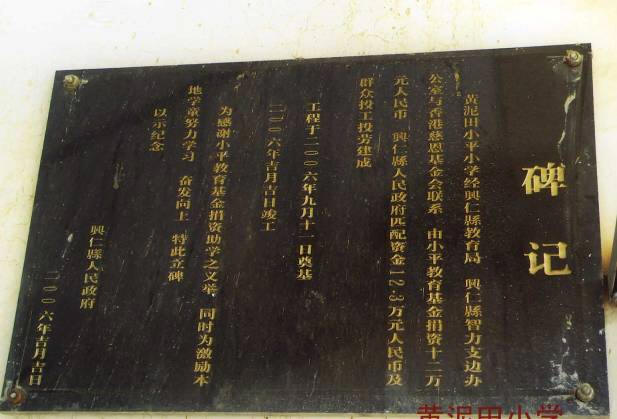 碑记
黄泥田小平小学经興仁縣教育局 興仁縣智力支边办
公室与香港慈恩基金会联系 由小平教育基金捐资十二万
元人民币 興仁縣人民政府匹配资金12.3万元人民币及
群众投工投劳建成
工程于二00六年九月十二日奠基
二00六年吉月吉日竣工
为感谢小平教育基金捐资助学之义举 同时为激励本
地学童努力学习 奋发向上 特此立碑
以示纪念
興仁縣人民政府
二00六年吉月吉日
黄泥田小学